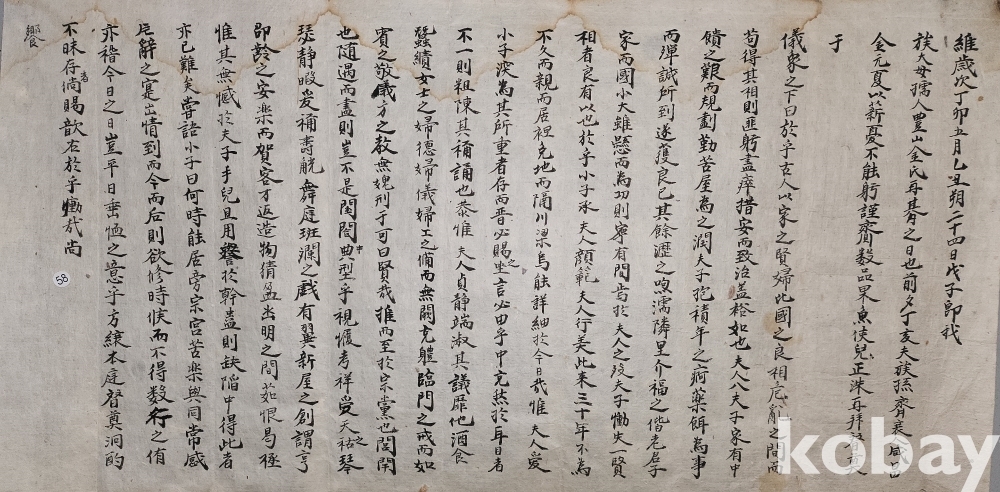 維歲次丁卯五月乙丑朔二十四日戊子卽我
族大母孺人豐山金氏再朞之日也前夕丁亥夫族孫齊衰咸昌
金元夏以薪憂不能躬謹齎數品果魚使兒正洙再拜
于
儀象之下曰於乎古人以家之賢婦比國之良相危亂之間而
苟得其相則匪躬盡瘁措安而致治盖裕如也夫人入夫子家有中
饋之艱而規劃勤苦屋為之潤夫子抱積年之痾藥餌為事
而殫誠所到遂獲良已其餘瀝之呴濡隣里介福之偕老名子
家而國小大雖懸而為功則寧有間焉於夫人之歿夫子慟失一賢
相者良有以也於乎小子承夫人顏範夫人行義此來三十年不為
不久而親而居裡兔地而隔川梁烏能詳細於今日哉惟夫人愛
小子深為其所重者存而晋必賜之坐言必由乎中完然於耳目者
不一則粗陳其禰誦也恭惟夫人貞静端淑其議靡他酒食
蠶績女士之婦德婦儀婦工之備而無闕克軆臨門之戒而如
賓之敬義方之教無媿刑于可曰賢哉推而至於宗黨也閨閫
也随遇而盡則豈不是閨閤中典型乎視履考祥受天之祜琴
瑟静嘏爰稱壽觥舞庭班斕之戲有翼新屋之創謂享
卽齡之安樂而賀客才返造物猜盈出明之間茹恨曷極
惟其無憾於夫子手兒且用譽於幹蠱則缺陷中得此者
亦已難矣嘗語小子曰何時能居旁宗宮苦樂與同常感
卮辭之寔出情到而今而后則欲修時候而不得數行之侑
亦猶今日之日豈平日垂恤之意乎方綠本庭啓奠泂酌
不昧存者尙賜歆右於乎慟哉尙
饗
58
kobay